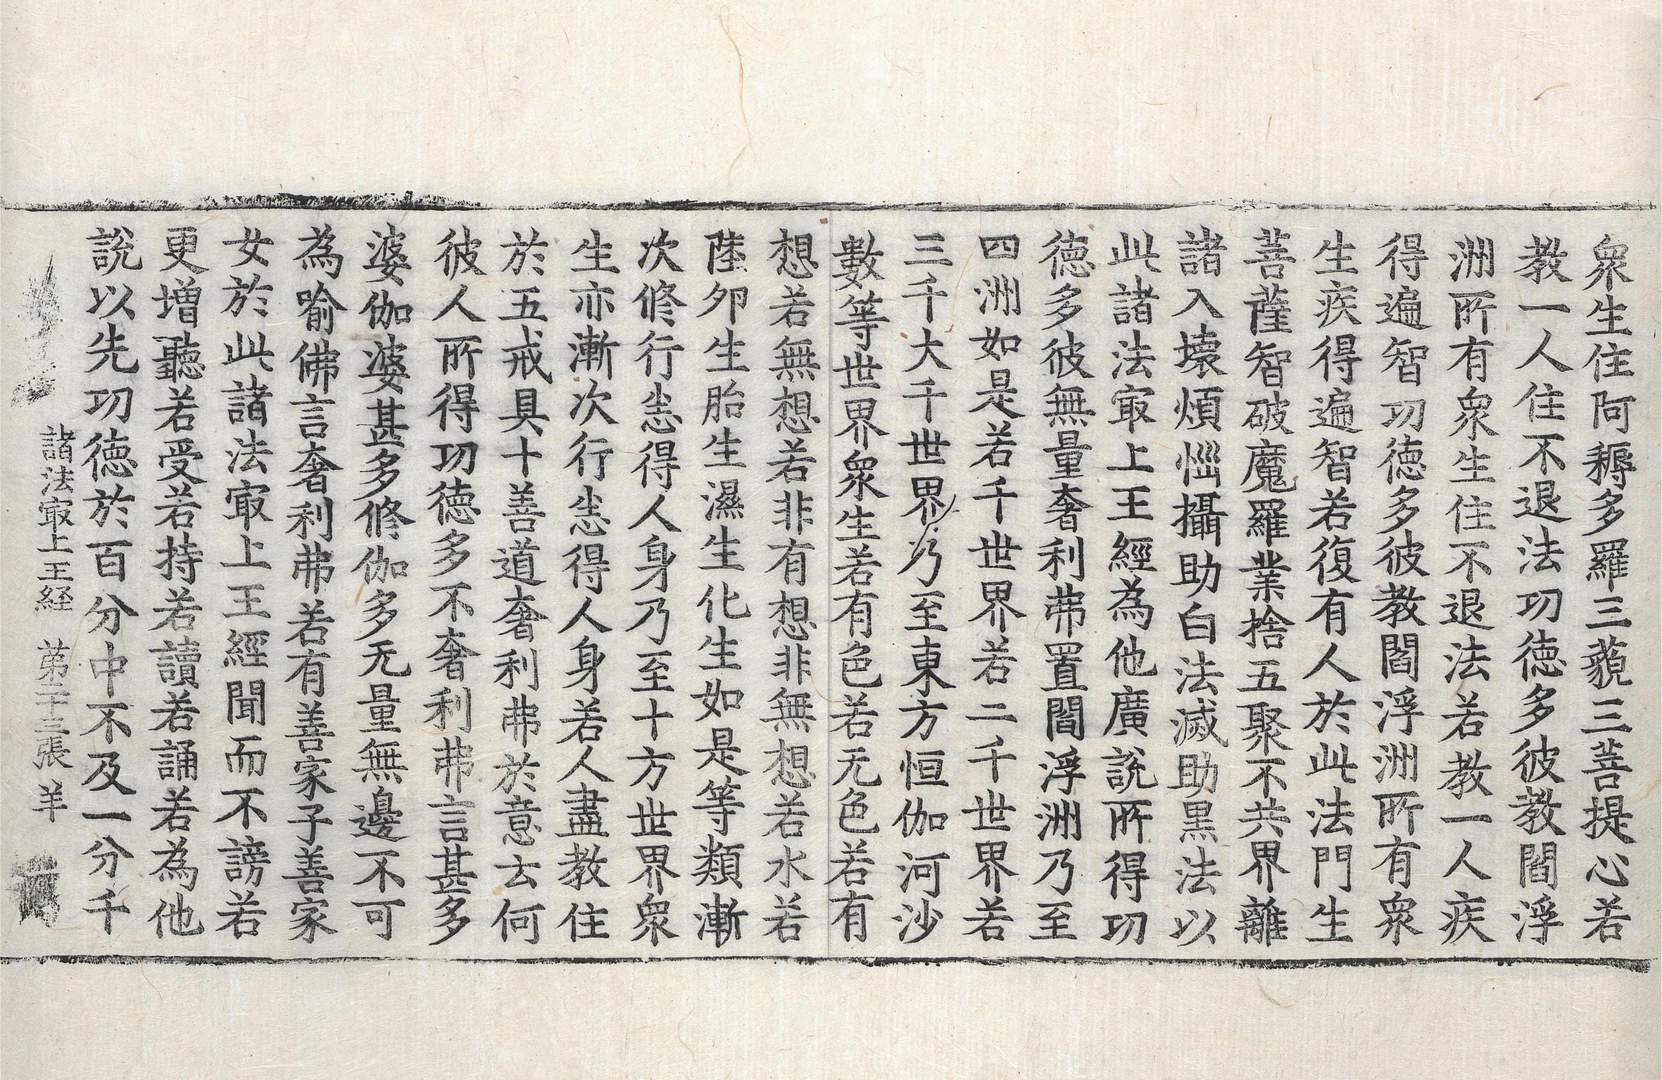 衆生住阿耨多羅三藐三菩提心若
教一人住不退法功德多彼教閻浮
洲所有衆生住不退法若教一人疾
得遍智功德多彼教閻浮洲所有衆
生疾得遍智若復有人於此法門生
菩薩智破魔羅業捨五聚不共界離
諸入壞煩惱攝助白法滅助黒法以
此諸法㝡上王經為他廣說所得功
德多彼無量奢利弗置閻浮洲乃至
四洲如是若千世界若二千世界若
三千大千世界乃至東方恒伽河沙
數等世界衆生若有色若无色若有
想若無想若非有想非無想若水若
陸卵生胎生濕生化生如是等類漸
次修行悉得人身乃至十方世界衆
生亦漸次行悉得人身若人盡教住
於五戒具十善道奢利弗於意云何
彼人所得功德多不奢利弗言甚多
婆伽婆甚多修伽多无量無邊不可
為喻佛言奢利弗若有善家子善家
女於此諸法㝡上王經聞而不謗若
更增聽若受若持若讀若誦若為他
說以先功德於百分中不及一分千
諸法㝡上王経 第二十三張 羊